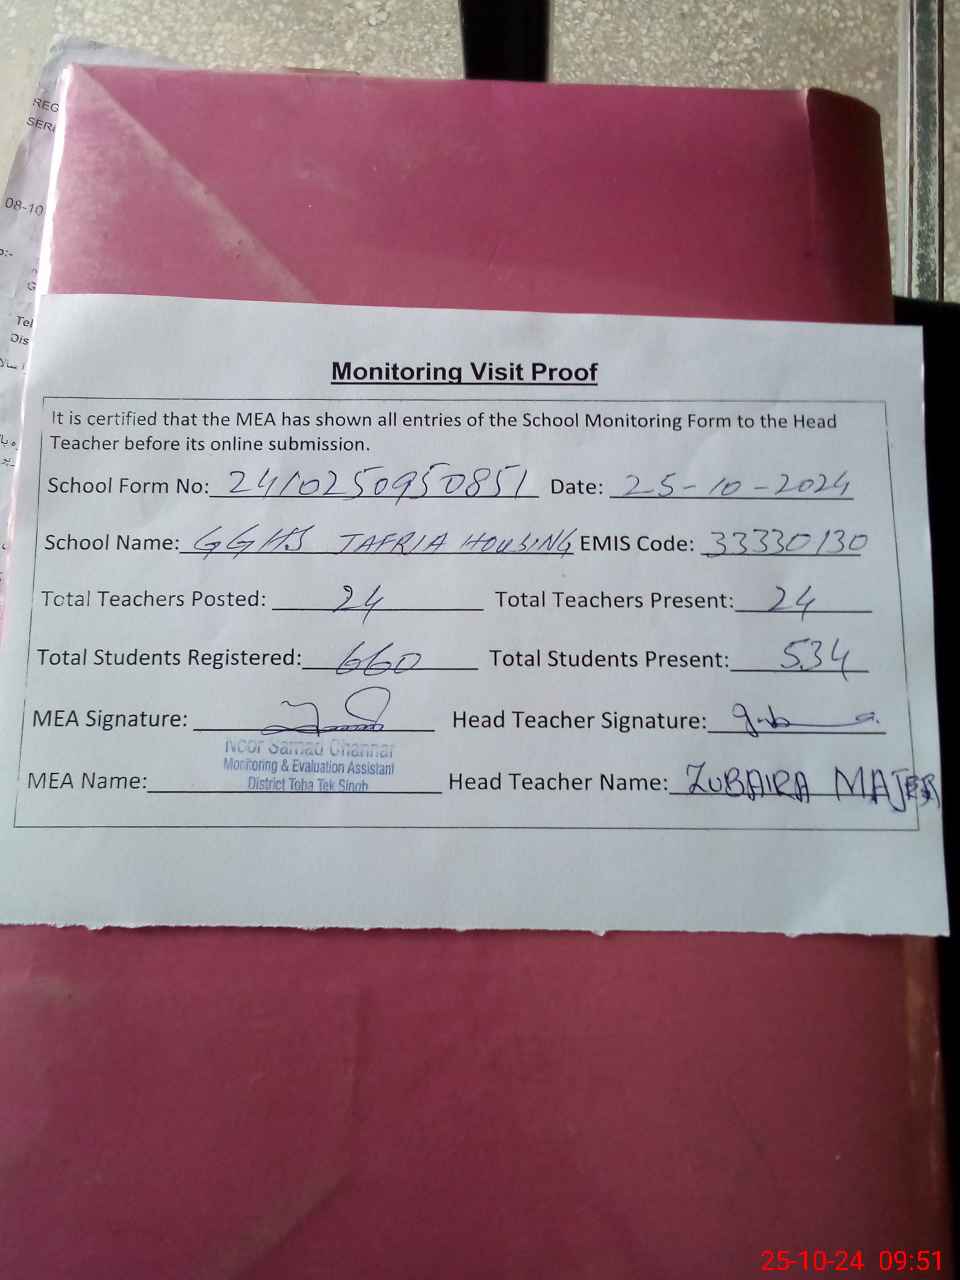 REG
SERI
08-10
Tel
Dis
Monitoring Visit Proof
It is certified that the MEA has shown all entries of the School Monitoring Form to the Head
Teacher before its online submission.
School Form No: 2410250950851 Date: 25-10-2024
School Name: GGHS JAFRIA HOUSING EMIS Code: 33330130
Total Teachers Posted: 24 Total Teachers Present: 24
Total Students Registered: 660 Total Students Present: 534
MEA Signature: Head Teacher Signature:
Noor Samad Channar
Monitoring & Evaluation Assistant
District Toba Tek Singh
MEA Name: Head Teacher Name: ZUBAIRA
25-10-24 09:51